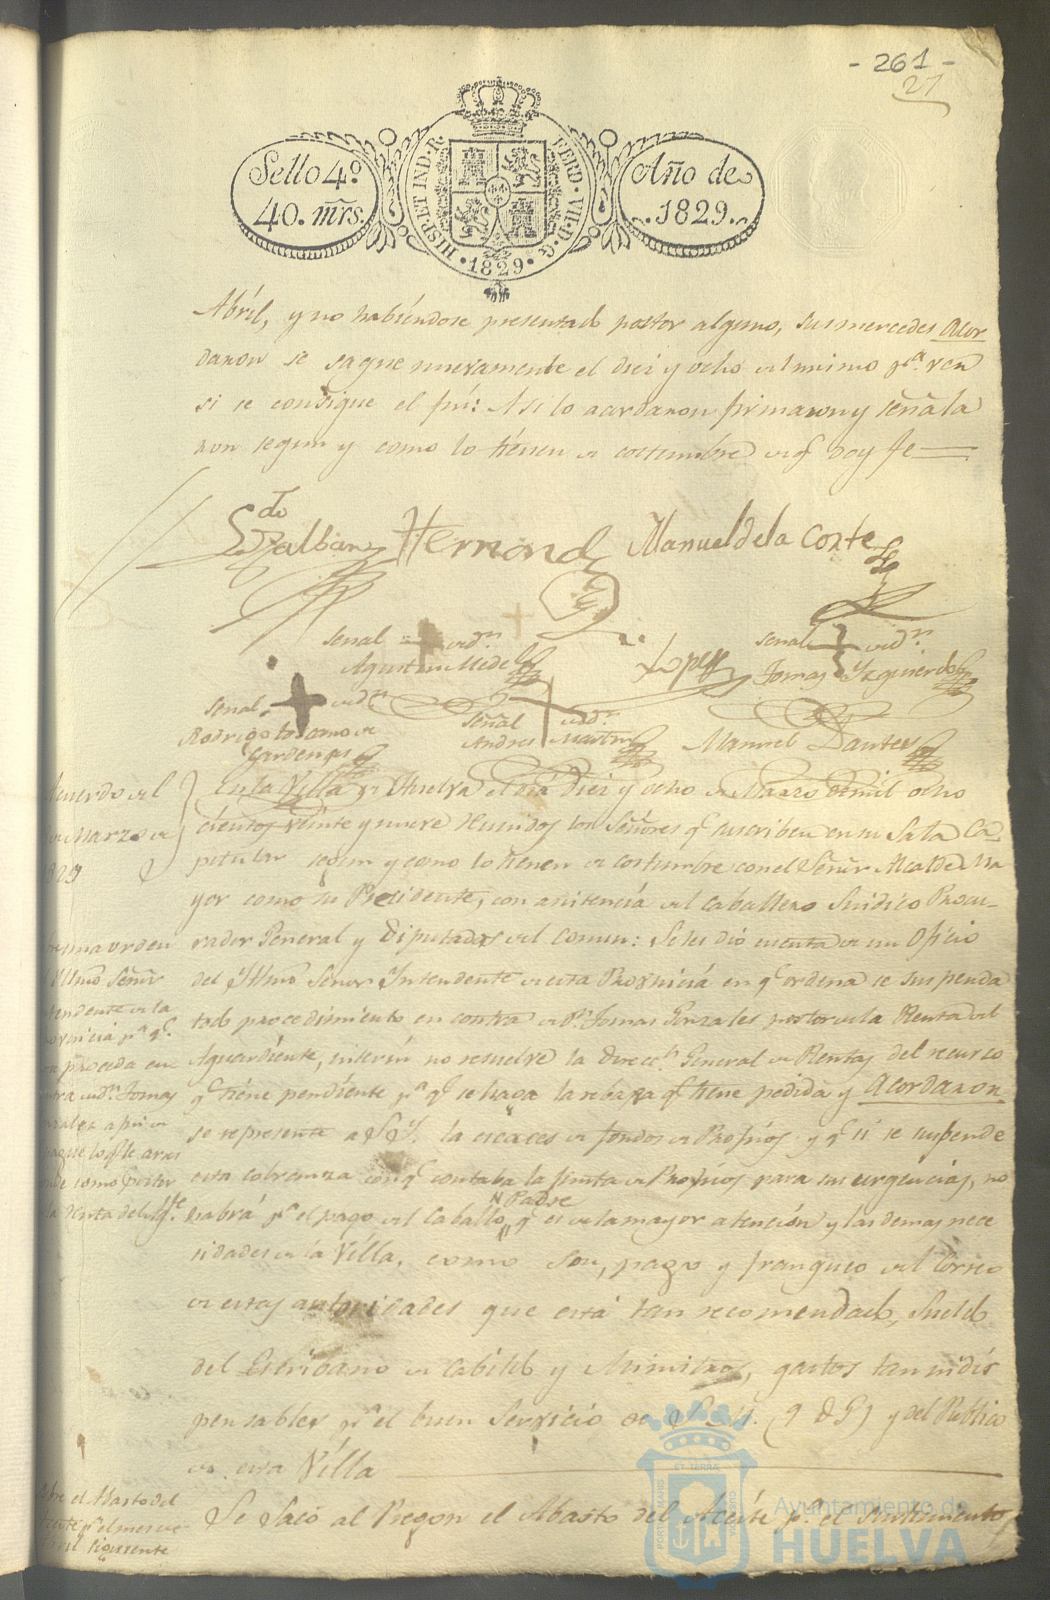 - 261 -
27
Sello 4º
40. mrs.
HISP. ET IND. R. FERD. VII. D. G.
1829
Año de
1829.
Abril, y no habiendose presentado postor alguno, sus mercedes Acor
daron se saque nuevamente el diez y ocho del mismo pª. ver
si se consigue el fin: Asi lo acordaron firmaron y señala
ron segun y como lo tienen de costumbre de q doy fe
Hernand
Manuel de la Corte
señal + de Dn.
Agustin Medel
Lopez
señal + de Dn.
Tomas Yzquierdo
señal + de Dn.
Rodrigo
Cardenas
Señal + de Dn.
Andres Martin
Manuel
Acuerdo del
de Marzo de
1829
En la Villa de Huelva el dia Diez y ocho de Marzo de mil ocho
cientos veinte y nueve Reunidos los Señores q suscriben en su Sala Ca-
pitular segun y como lo tienen de costumbre con el Señor Alcalde Ma
yor como su Presidente, con asistencia del Caballero Sindico Procu-
rador General y Diputados del Comun: Se les dió cuenta de un Oficio
del Yltmo Señor Yntendente de esta Provincia en q ordena se suspenda
todo procedimiento en contra de Dn. Tomas Gonzales postor de la Renta del
Aguardiente, interin no resuelve la Direccn. General de Rentas del recurso
q tiene pendiente pª q se haga la rebaja q tiene pedida y Acordaron
se represente a S. Y. la escaces de fondos de Propios y q si se suspende
esta cobranza con q contaba la Junta de Propios para sus urgencias, no
habrá pª el pago del Caballo N Padre q es de la mayor atención y las demas nece
sidades de la Villa, como son, pago y franqueo del Correo
de estas autoridades que está tan recomendado, Sueldo
del Escribano de Cabildo y Ministros, gastos tan indis
pensables pª el buen Servicio de S. M. (q D G) y del Publico
de esta Villa
una orden
Yltmo Señor
tendente de la
ovincia pª q
proceda en
ntra de Dn. Tomas
como postor
la Renta del Agte.
Se Sacó al Pregon el Abasto del Aceite pª el surtimiento
bre el Abasto del
ceite pª el mes de
bril siguiente
PORTUS MARIS ET TERRAE CUSTODIA
Ayuntamiento de
HUELVA